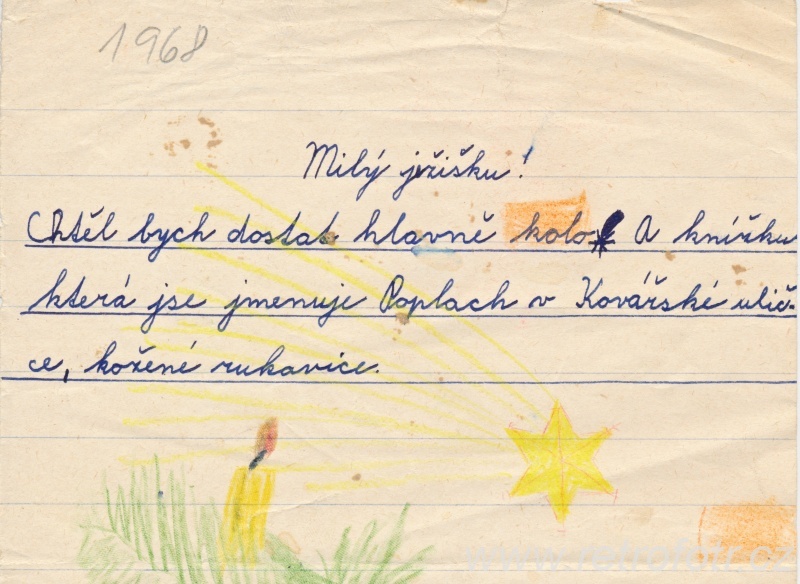 1968
Milý ježišku!
Chtěl bych dostat hlavně kolo. A knížku
která jse jmenuje Poplach v Kovářské ulič-
ce, kožené rukavice.
www.retrofotr.cz